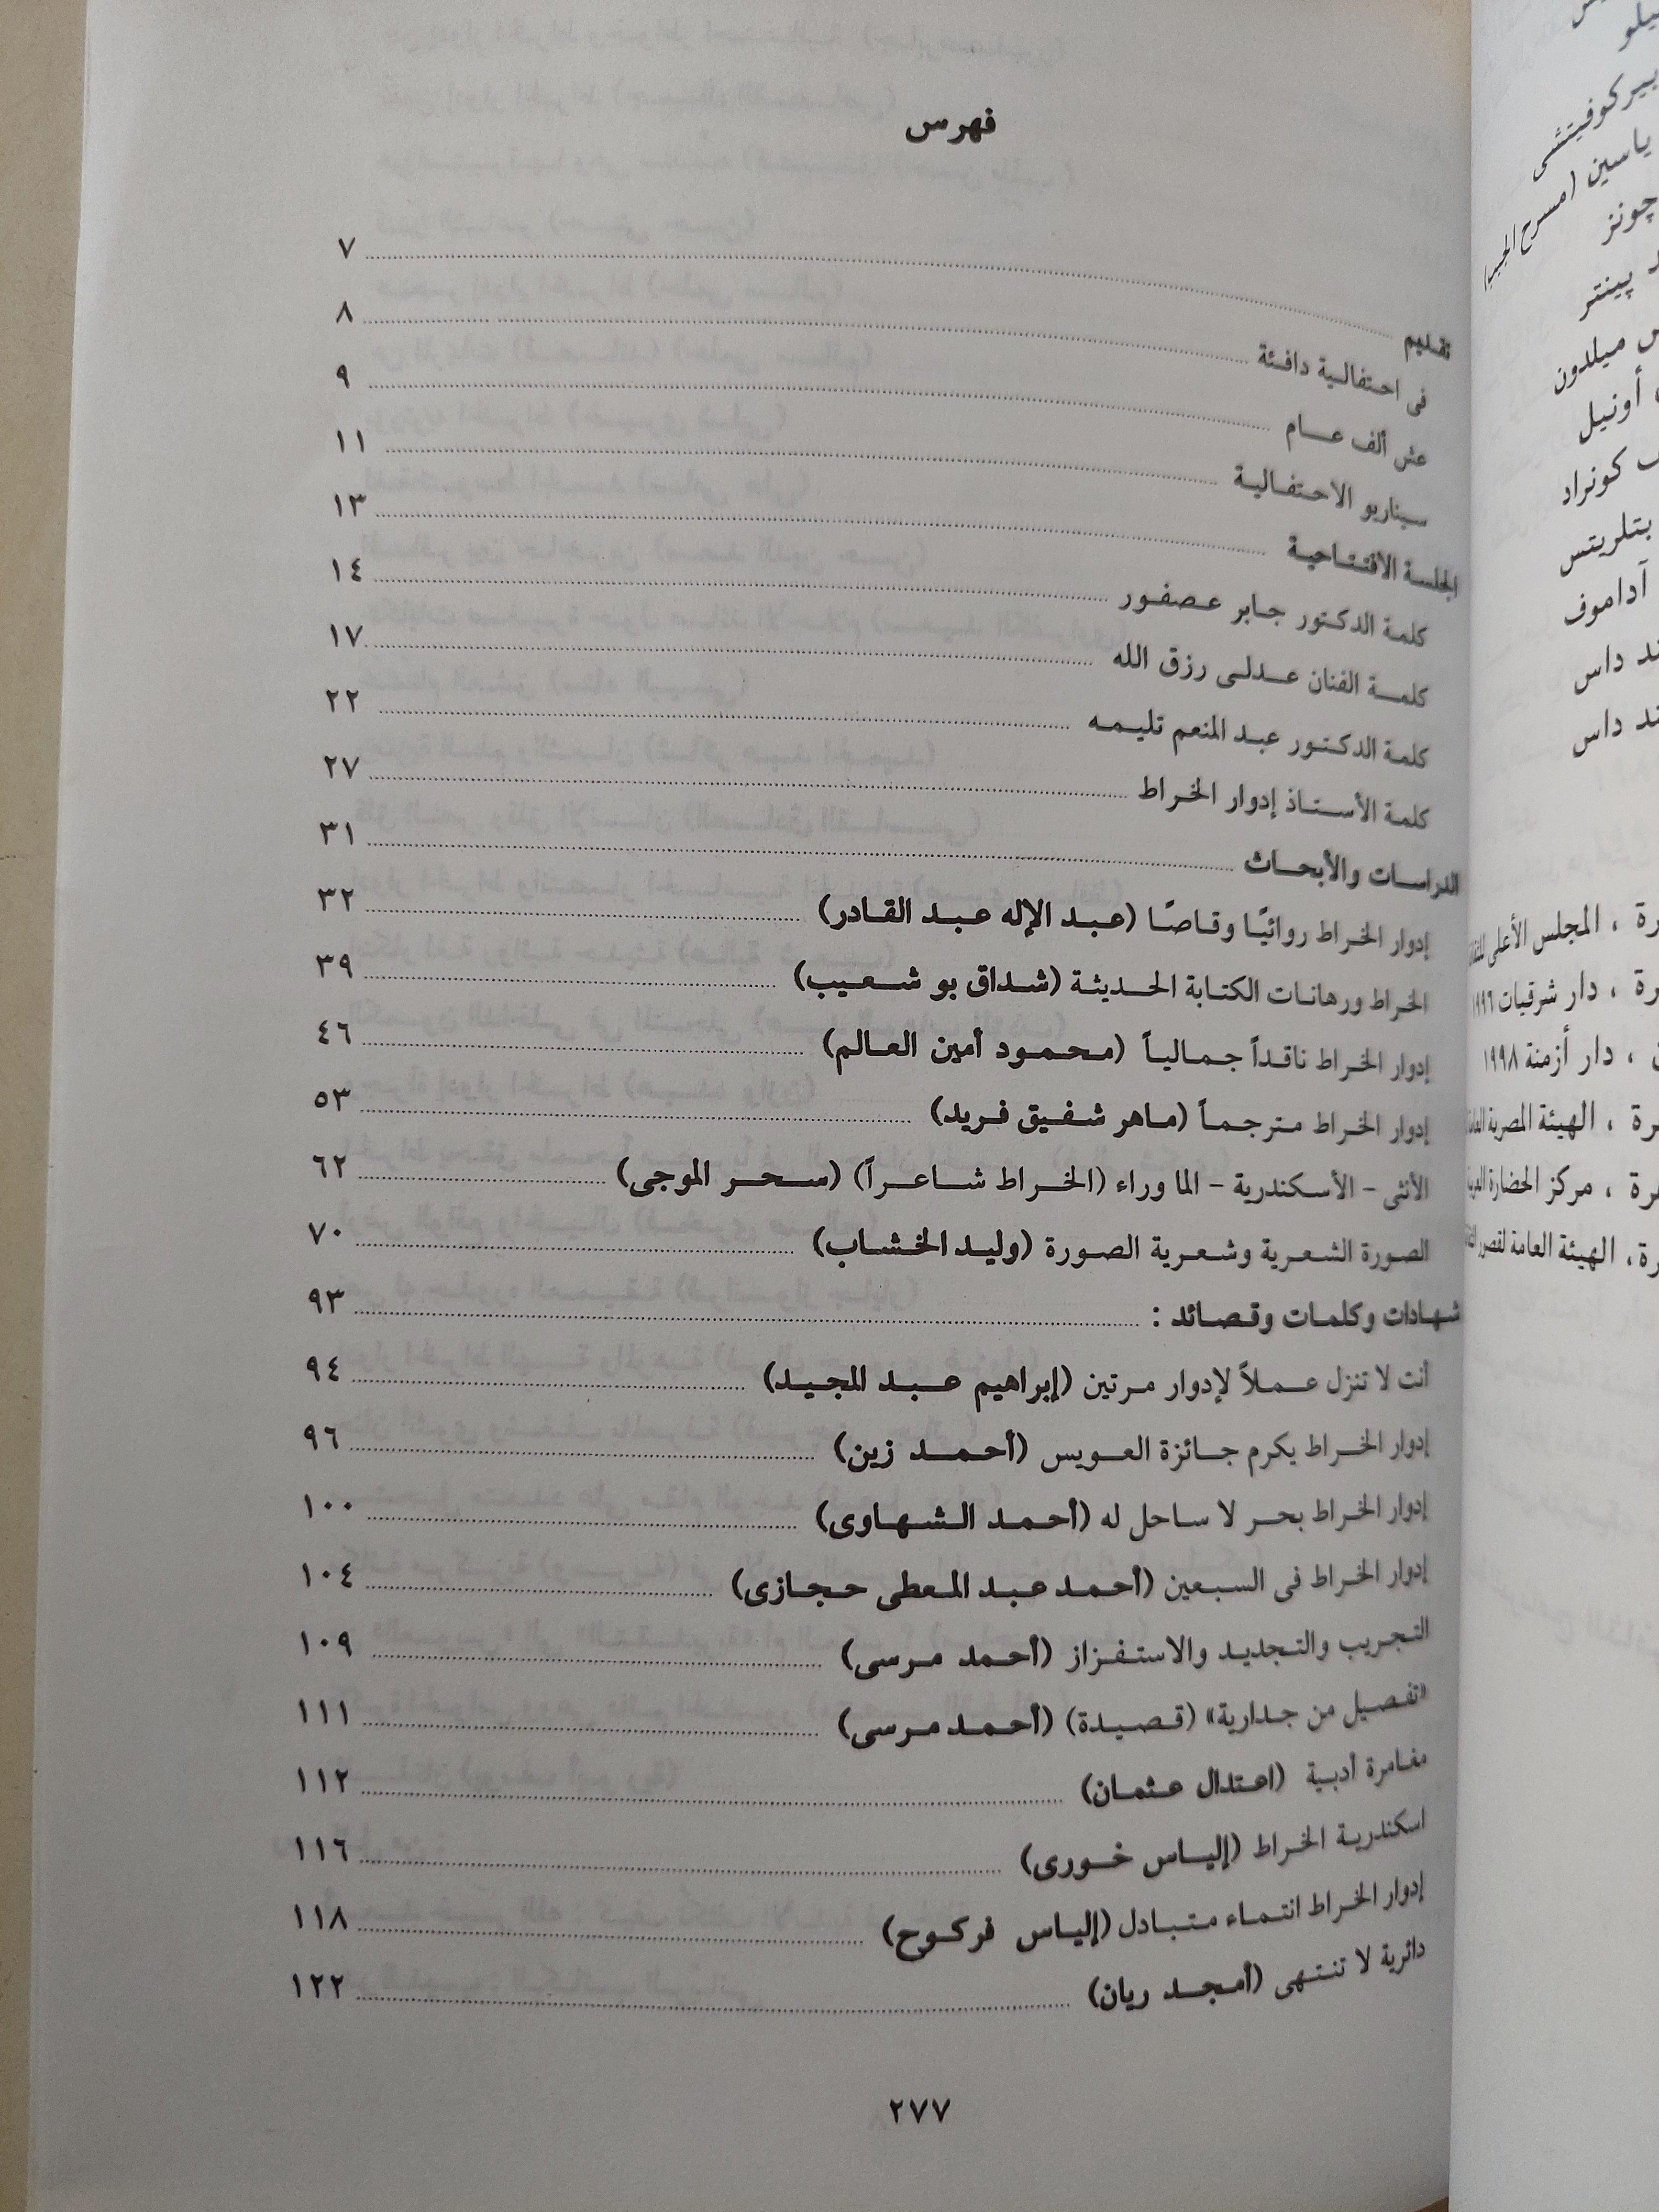 فهرس
تقديم ... ٧
فى احتفالية دافئة ... ٨
عش ألف عام ... ٩
سيناريو الاحتفالية ... ١١
الجلسة الافتتاحية ... ١٣
كلمة الدكتور جابر عصفور ... ١٤
كلمة الفنان عدلى رزق الله ... ١٧
كلمة الدكتور عبد المنعم تليمه ... ٢٢
كلمة الأستاذ إدوار الخراط ... ٢٧
الدراسات والأبحاث ... ٣١
إدوار الخراط روائيًا وقاصًا (عبد الإله عبد القادر) ... ٣٢
الخراط ورهانات الكتابة الحديثة (شداق بو شعيب) ... ٣٩
إدوار الخراط ناقداً جمالياً (محمود أمين العالم) ... ٤٦
إدوار الخراط مترجماً (ماهر شفيق فريد) ... ٥٣
الأنثى - الأسكندرية - الما وراء (الخراط شاعراً) (سحر الموجى) ... ٦٢
الصورة الشعرية وشعرية الصورة (وليد الخشاب) ... ٧٠
شهادات وكلمات وقصائد : ... ٩٣
أنت لا تنزل عملاً لإدوار مرتين (إبراهيم عبد المجيد) ... ٩٤
إدوار الخراط يكرم جائزة العويس (أحمد زين) ... ٩٦
إدوار الخراط بحر لا ساحل له (أحمد الشهاوى) ... ١٠٠
إدوار الخراط فى السبعين (أحمد عبد المعطى حجازى) ... ١٠٤
التجريب والتجديد والاستفزاز (أحمد مرسى) ... ١٠٩
«تفصيل من جدارية» (قصيدة) (أحمد مرسى) ... ١١١
مغامرة أدبية (اعتدال عثمان) ... ١١٢
اسكندرية الخراط (إلياس خورى) ... ١١٦
إدوار الخراط انتماء متبادل (إلياس فركوح) ... ١١٨
دائرية لا تنتهى (أمجد ريان) ... ١٢٢
٢٧٧
بيركوفيتشى
ياسين (مسرح الجيب)
چونز
پينتر
ميلدون
أونيل
كونراد
بتلريتس
آداموف
داس
داس
، المجلس الأعلى
، دار شرقيات ١٩٩٦
، دار أزمنة ١٩٩٨
، الهيئة المصرية
، مركز الحضارة
، الهيئة العامة لقصور